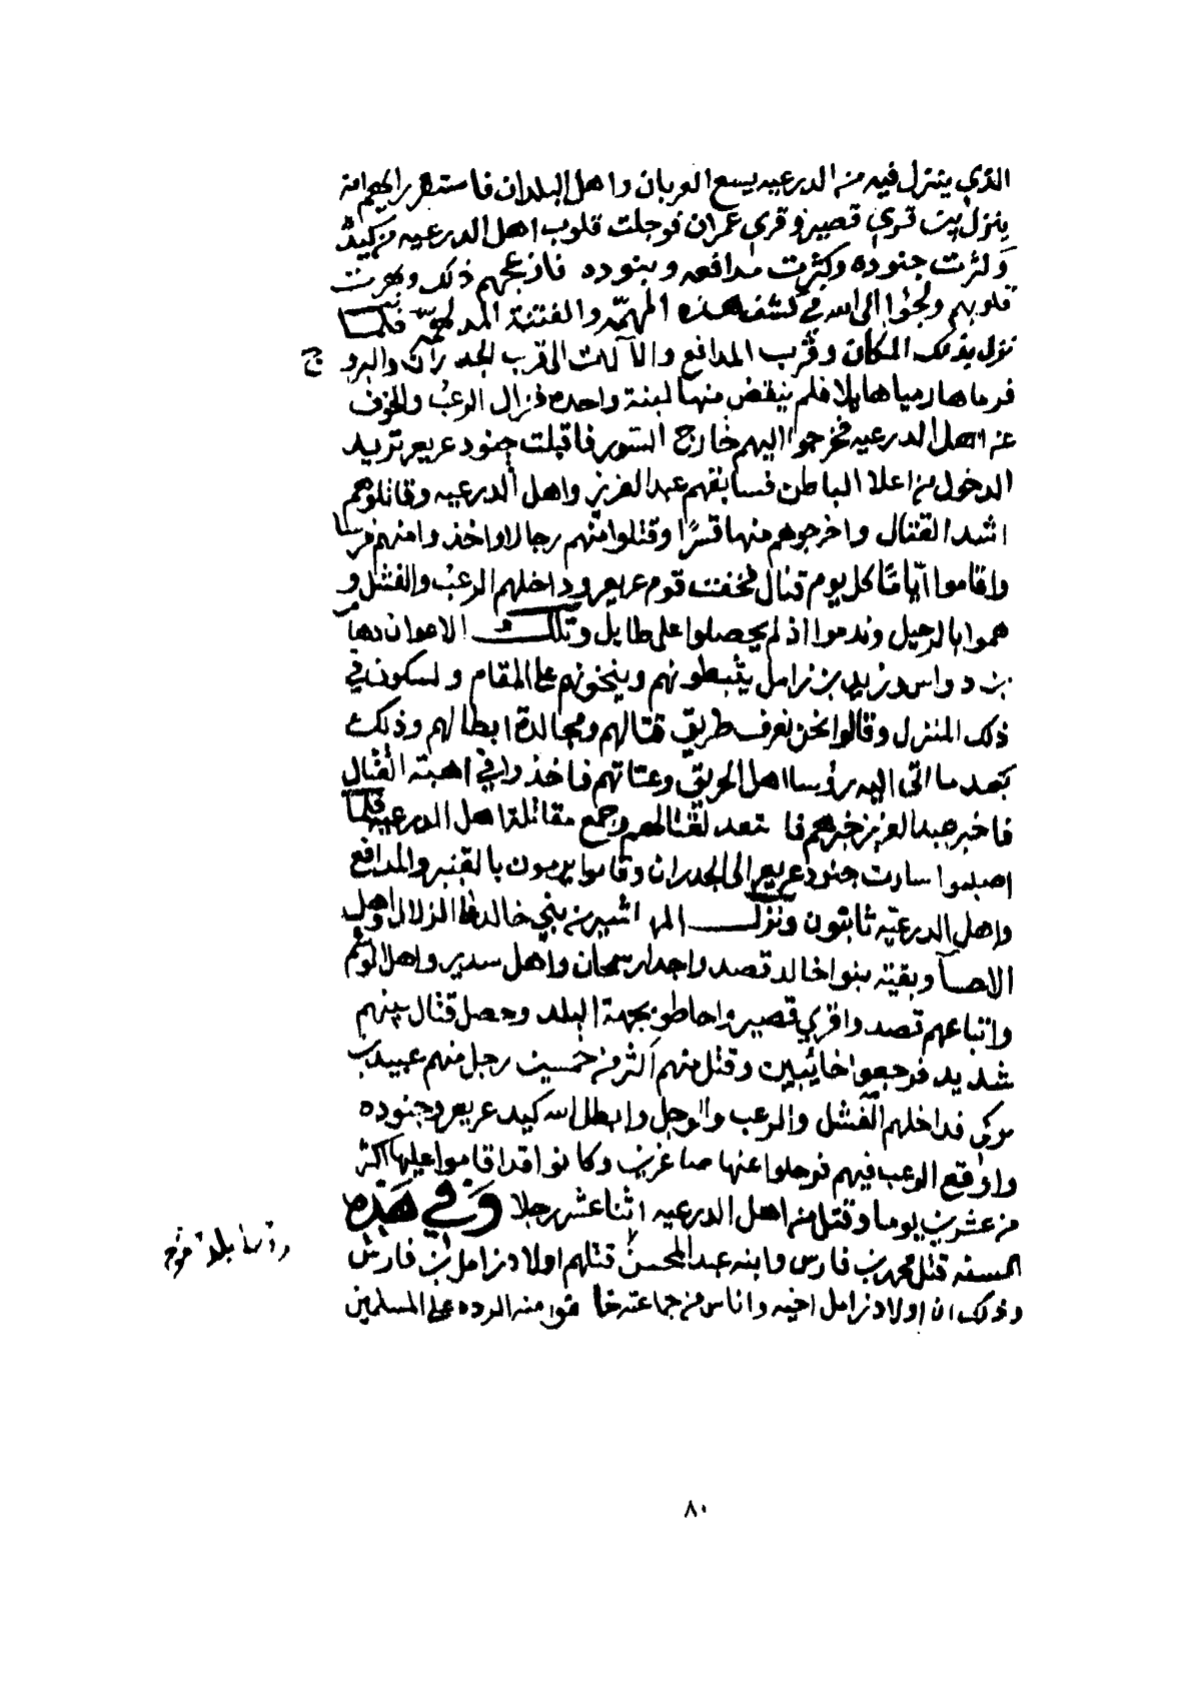 الذي ينزل فيه من الدرعيه يسع العربان واهل البلدان فاستقر رايهم انه
ينزل بين قري قصير وقري عمران فوجلت قلوب اهل الدرعيه من كيده
وكثرت جنوده وكثرت مدافعه وبنوده فازعجهم ذلك وبهرت
قلوبهم ولجئوا الى الله في كشف هذه المهمّه والفتنة المدلهمّه فلما
نزل بذلك المكان وقرب المدافع والآلات الى قرب الجدران والبروج
فرماها رميا هايلا فلم ينقض منها لبنة واحده فزال الرعب والخوف
عن اهل الدرعيه فخرجوا اليهم خارج السور فاقبلت جنود عريعر تريد
الدخول من اعلا الباطن فسابقهم عبدالعزيز واهل الدرعيه وقاتلوهم
اشد القتال واخرجوهم منها قسرًا وقتلوا منهم رجالا واخذوا منهم فرسا
واقاموا ايّامًا كل يوم قتال فخفت قوم عريعر وداخلهم الرعب والفشل و
هموا بالرحيل وندموا اذ لم يحصلوا على طايل وتلك الاعوان دهام
بن دواس وزيد بن زامل يثبطونهم وينخونهم على المقام والسكون في
ذلك المنزل وقالوا نحن نعرف طريق قتالهم ومجالدة ابطالهم وذلك
بعد ما اتى اليه رؤسا اهل الحريق وعتاتهم فاخذوا في اهبته القتال
فاخبر عبدالعزيز خبرهم فاستعد لقتالهم وجمع مقاتلة اهل الدرعيه فلما
اصبحوا سارت جنود عريعر الى الجدران وقاموا يرمون بالقنبر والمدافع
واهل الدرعيّه ثابتون ونزل المهاشير من بني خالد على الزلال واهل
الاحسا وبقيّة بنوا خالد قصدوا جدار سمحان واهل سدير واهل الوشم
واتباعهم قصدوا قري قصير واحاطو بجهة البلد وحصل قتال بينهم
شديد فرجعوا خائبين وقتل منهم اكثر من خمسين رجل منهم عبيد بن
تركي فداخلهم الفشل والرعب والوجل وابطل الله كيد عريعر وجنوده
واوقع الرعب فيهم فرحلوا عنها صاغرين وكانوا قد اقاموا عليها اكثر
من عشرين يوما وقتل من اهل الدرعيه اثنا عشر رجلا وفي هذه
السنه قتل محمد بن فارس وابنه عبدالمحسن قتلهم اولاد زامل بن فارس
رؤسا بلد منفوحه
وذلك ان اولاد زامل اخيه واناس من جماعته خافوا منه الرده على المسلمين
٨٠